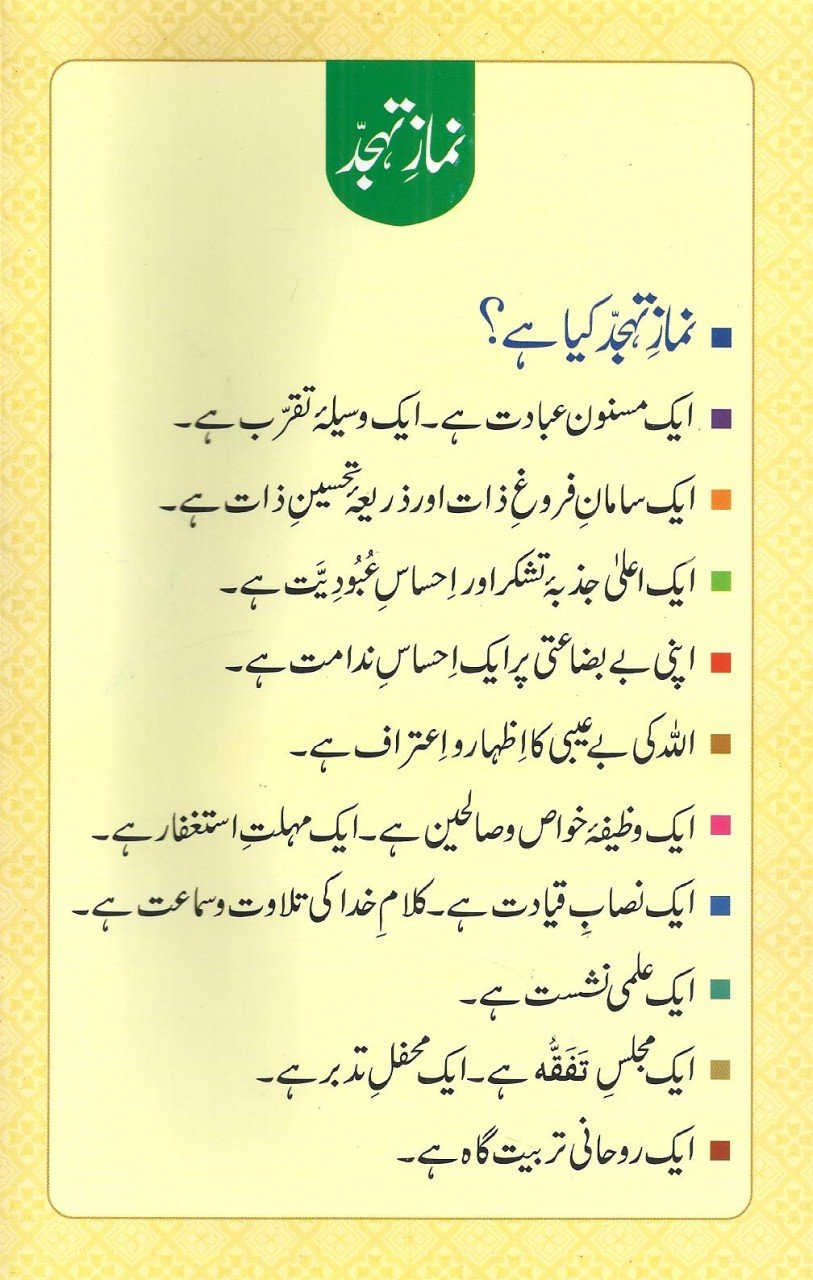 نمازِ تہجدّ
نمازِ تہجدّ کیا ہے؟
ایک مسنون عبادت ہے۔ ایک وسیلۂ تقرّب ہے۔
ایک سامانِ فروغِ ذات اور ذریعۂ تحسینِ ذات ہے۔
ایک اعلیٰ جذبۂ تشکر اور اِحساسِ عُبُودِیَّت ہے۔
اپنی بے بضاعتی پر ایک اِحساسِ ندامت ہے۔
اللہ کی بے عیبی کا اِظہار و اِعتراف ہے۔
ایک وظیفۂ خواص و صالحین ہے۔ ایک مہلتِ استغفار ہے۔
ایک نصابِ قیادت ہے۔ کلامِ خدا کی تلاوت و سماعت ہے۔
ایک علمی نشست ہے۔
ایک مجلسِ تَفَقُّہ ہے۔ ایک محفلِ تدبر ہے۔
ایک روحانی تربیت گاہ ہے۔